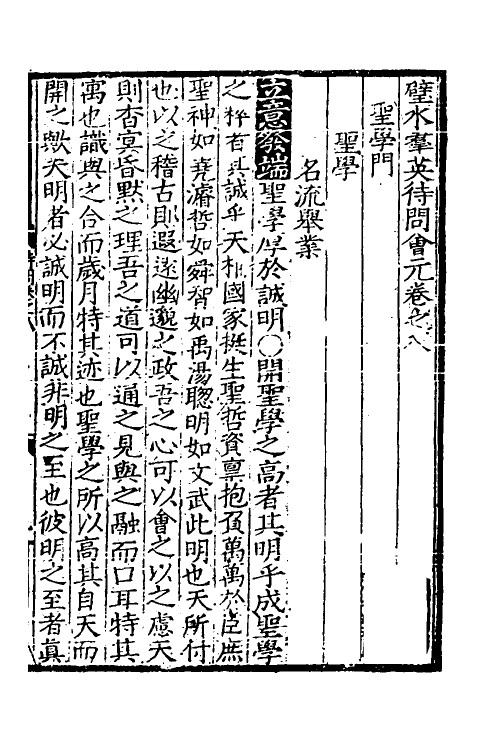 璧水羣英待問會元卷之八
聖學門
聖學
名流舉業
立意發端聖學學於誠明〇開聖學之高者其明乎成聖學
之粹者其誠乎天相國家挺生聖哲資禀抱負萬萬於臣庶
聖神如堯濬哲如舜智如禹湯聰明如文武此明也天所付
也以之稽古則遐逖幽邈之政吾之心可以會之以之慮天
則杳冥昏默之理吾之道可以通之見與之融而口耳特其
寓也識與之合而歲月特其迹也聖學之所以高其自天而
開之歟夫明者必誠明而不誠非明之至也彼明之至者真